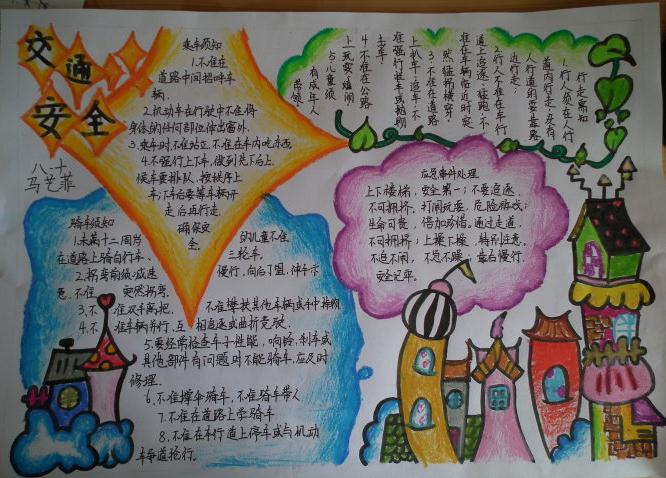 交通
安全
八.十
马艺菲
乘车须知
1.不准在
道路中间招呼车
辆.
2.机动车在行驶中不准将
身体的任何部位伸出窗外.
3.乘车时,不准站立,不准在车内吃东西
4.不强行上下车,做到先下后上,
候车要排队,按秩序上
车;下车后要等车辆开
走后再行走,
确保安
全.
行走需知
1.行人须在人行
道内行走,没有
人行道的要靠路
边行走;
2.行人不准在车行
道上追逐、猛跑,不
准在车辆临近时突
然猛拐横穿;
3.不准在道路
上扒车、追车,不
准强行拦车或抛物
击车;
4.不准在公路
上玩耍、嬉闹
5.儿童须
有成年人
带领.
应急事件处理
上下楼梯,安全第一;不要追逐,
不可拥挤.打闹玩耍,危险游戏;
生命可贵,倍加珍惜.通过走道,
不可拥挤;上操下操,特别注意.
不追不闹,不急不躁;靠右慢行
安全记牢.
骑车须知
1.未满十二周岁
的儿童不准
在道路上骑自行车、
三轮车.
2.拐弯前须减速
慢行,向后了望,伸手示
意.不准
突然拐弯.
3.不
准双手离把,
不准攀扶其他车辆或手中持物
4.不
准车辆并行、互相追逐或曲折竞驶.
5.要经常检查车子性能,响铃、刹车或
其他部件有问题时不能骑车,应及时
修理.
6.不准撑伞骑车,不准骑车带人
7.不准在道路上学骑车
8.不准在车行道上停车或与机动
车争道抢行.